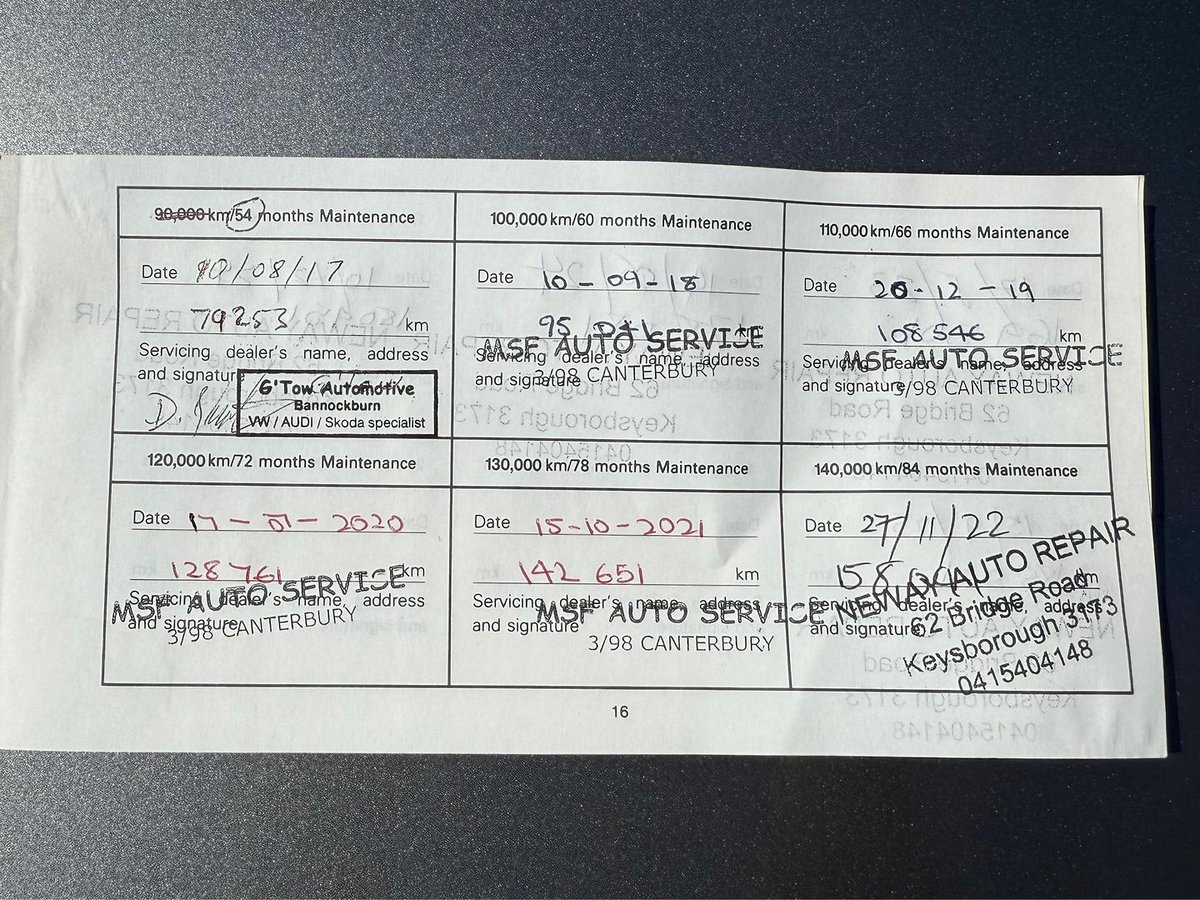 90,000 km/54 months Maintenance
Date 10/08/17
79253 km
Servicing dealer's name, address
and signature
G'Tow Automotive
Bannockburn
VW / AUDI / Skoda specialist
100,000 km/60 months Maintenance
Date 10-09-18
95 km
Servicing dealer's name, address
and signature
MSF AUTO SERVICE
3/98 CANTERBURY
110,000 km/66 months Maintenance
Date 20-12-19
108 546 km
Servicing dealer's name, address
and signature
MSF AUTO SERVICE
3/98 CANTERBURY
120,000 km/72 months Maintenance
Date 17-01-2020
128 761 km
Servicing dealer's name, address
and signature
MSF AUTO SERVICE
3/98 CANTERBURY
130,000 km/78 months Maintenance
Date 15-10-2021
142 651 km
Servicing dealer's name, address
and signature
MSF AUTO SERVICE
3/98 CANTERBURY
140,000 km/84 months Maintenance
Date 27/11/22
km
Servicing dealer's name, address
and signature
NEWAY AUTO REPAIR
62 Bridge Road
Keysborough 3173
0415404148
16